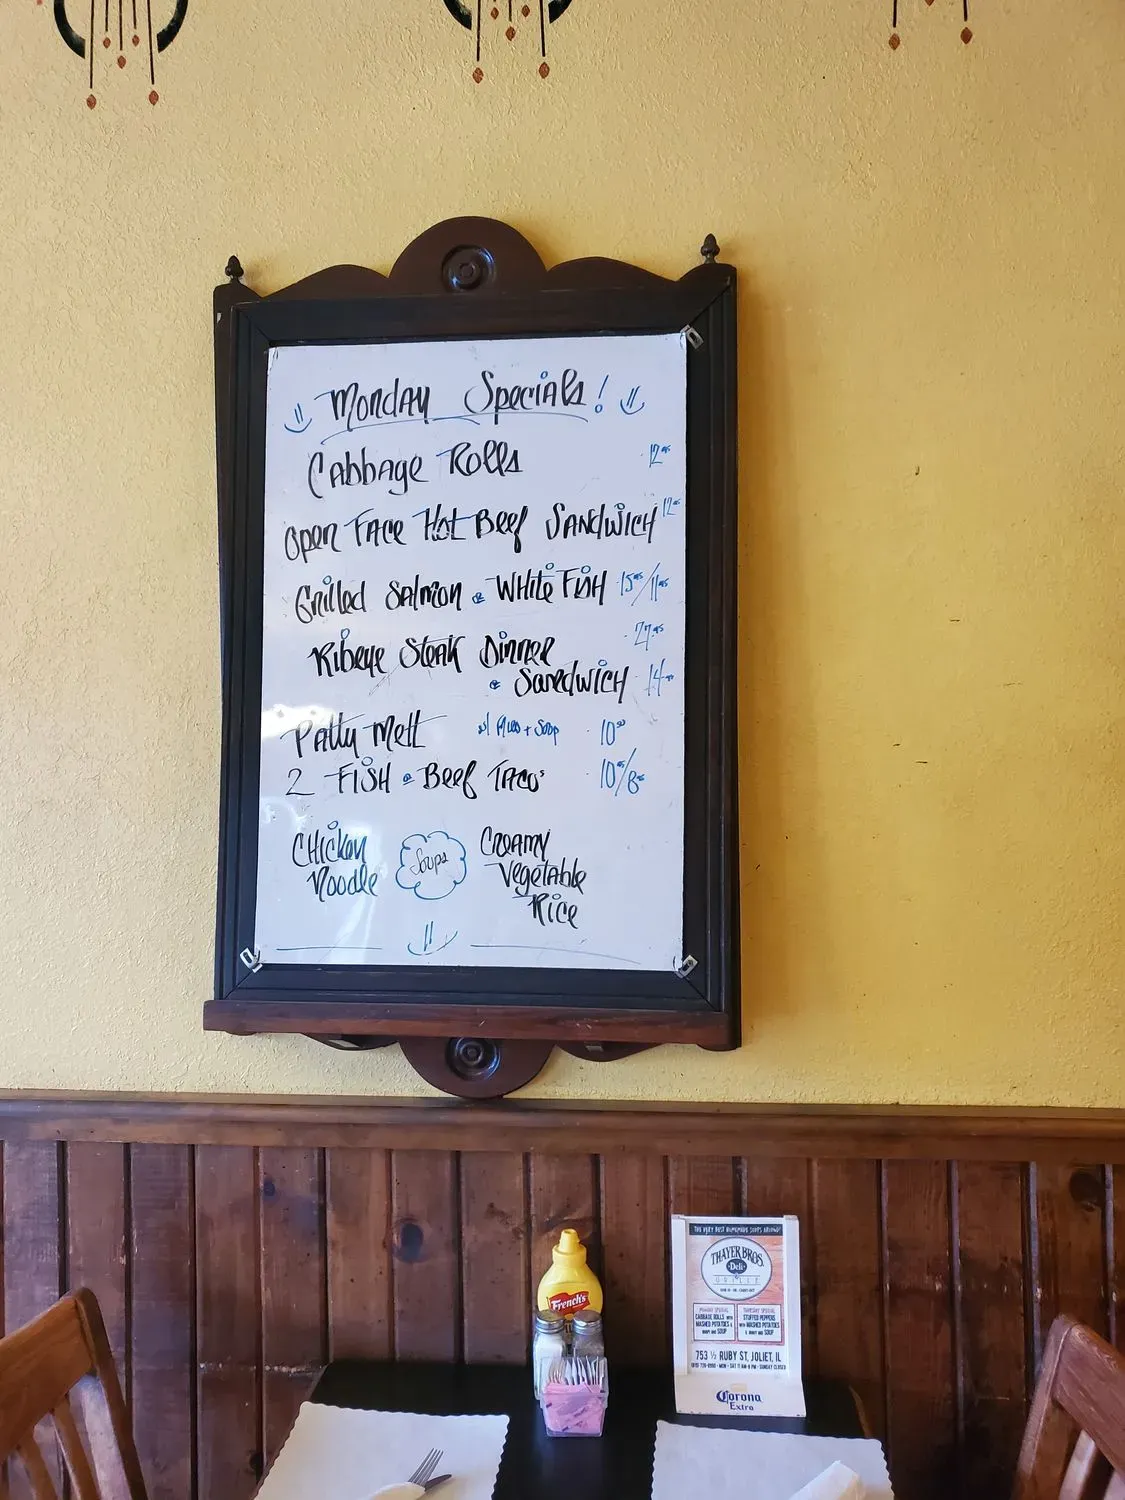 Monday Specials!
Cabbage Rolls 12.95
Open Face Hot Beef Sandwich 12
Grilled Salmon or White Fish 15.95/11.95
Ribeye Steak Dinner 27.95
or Sandwich 14
Patty Melt w/ Fries + Soup 10
2 Fish or Beef Taco's 10/8
Chicken
Noodle
Soups
Creamy
Vegetable
Rice
French's
THE VERY BEST HOMEMADE SOUPS AROUND!
THAYER BROS.
Deli
GRILLE
MONDAY SPECIAL
CABBAGE ROLLS WITH
MASHED POTATOES &
GRAVY AND SOUP
THURSDAY SPECIAL
STUFFED PEPPERS
WITH MASHED POTATOES
& GRAVY AND SOUP
753 ½ RUBY ST, JOLIET, IL
MON - SAT 11 AM-8 PM · SUNDAY CLOSED
Corona
Extra